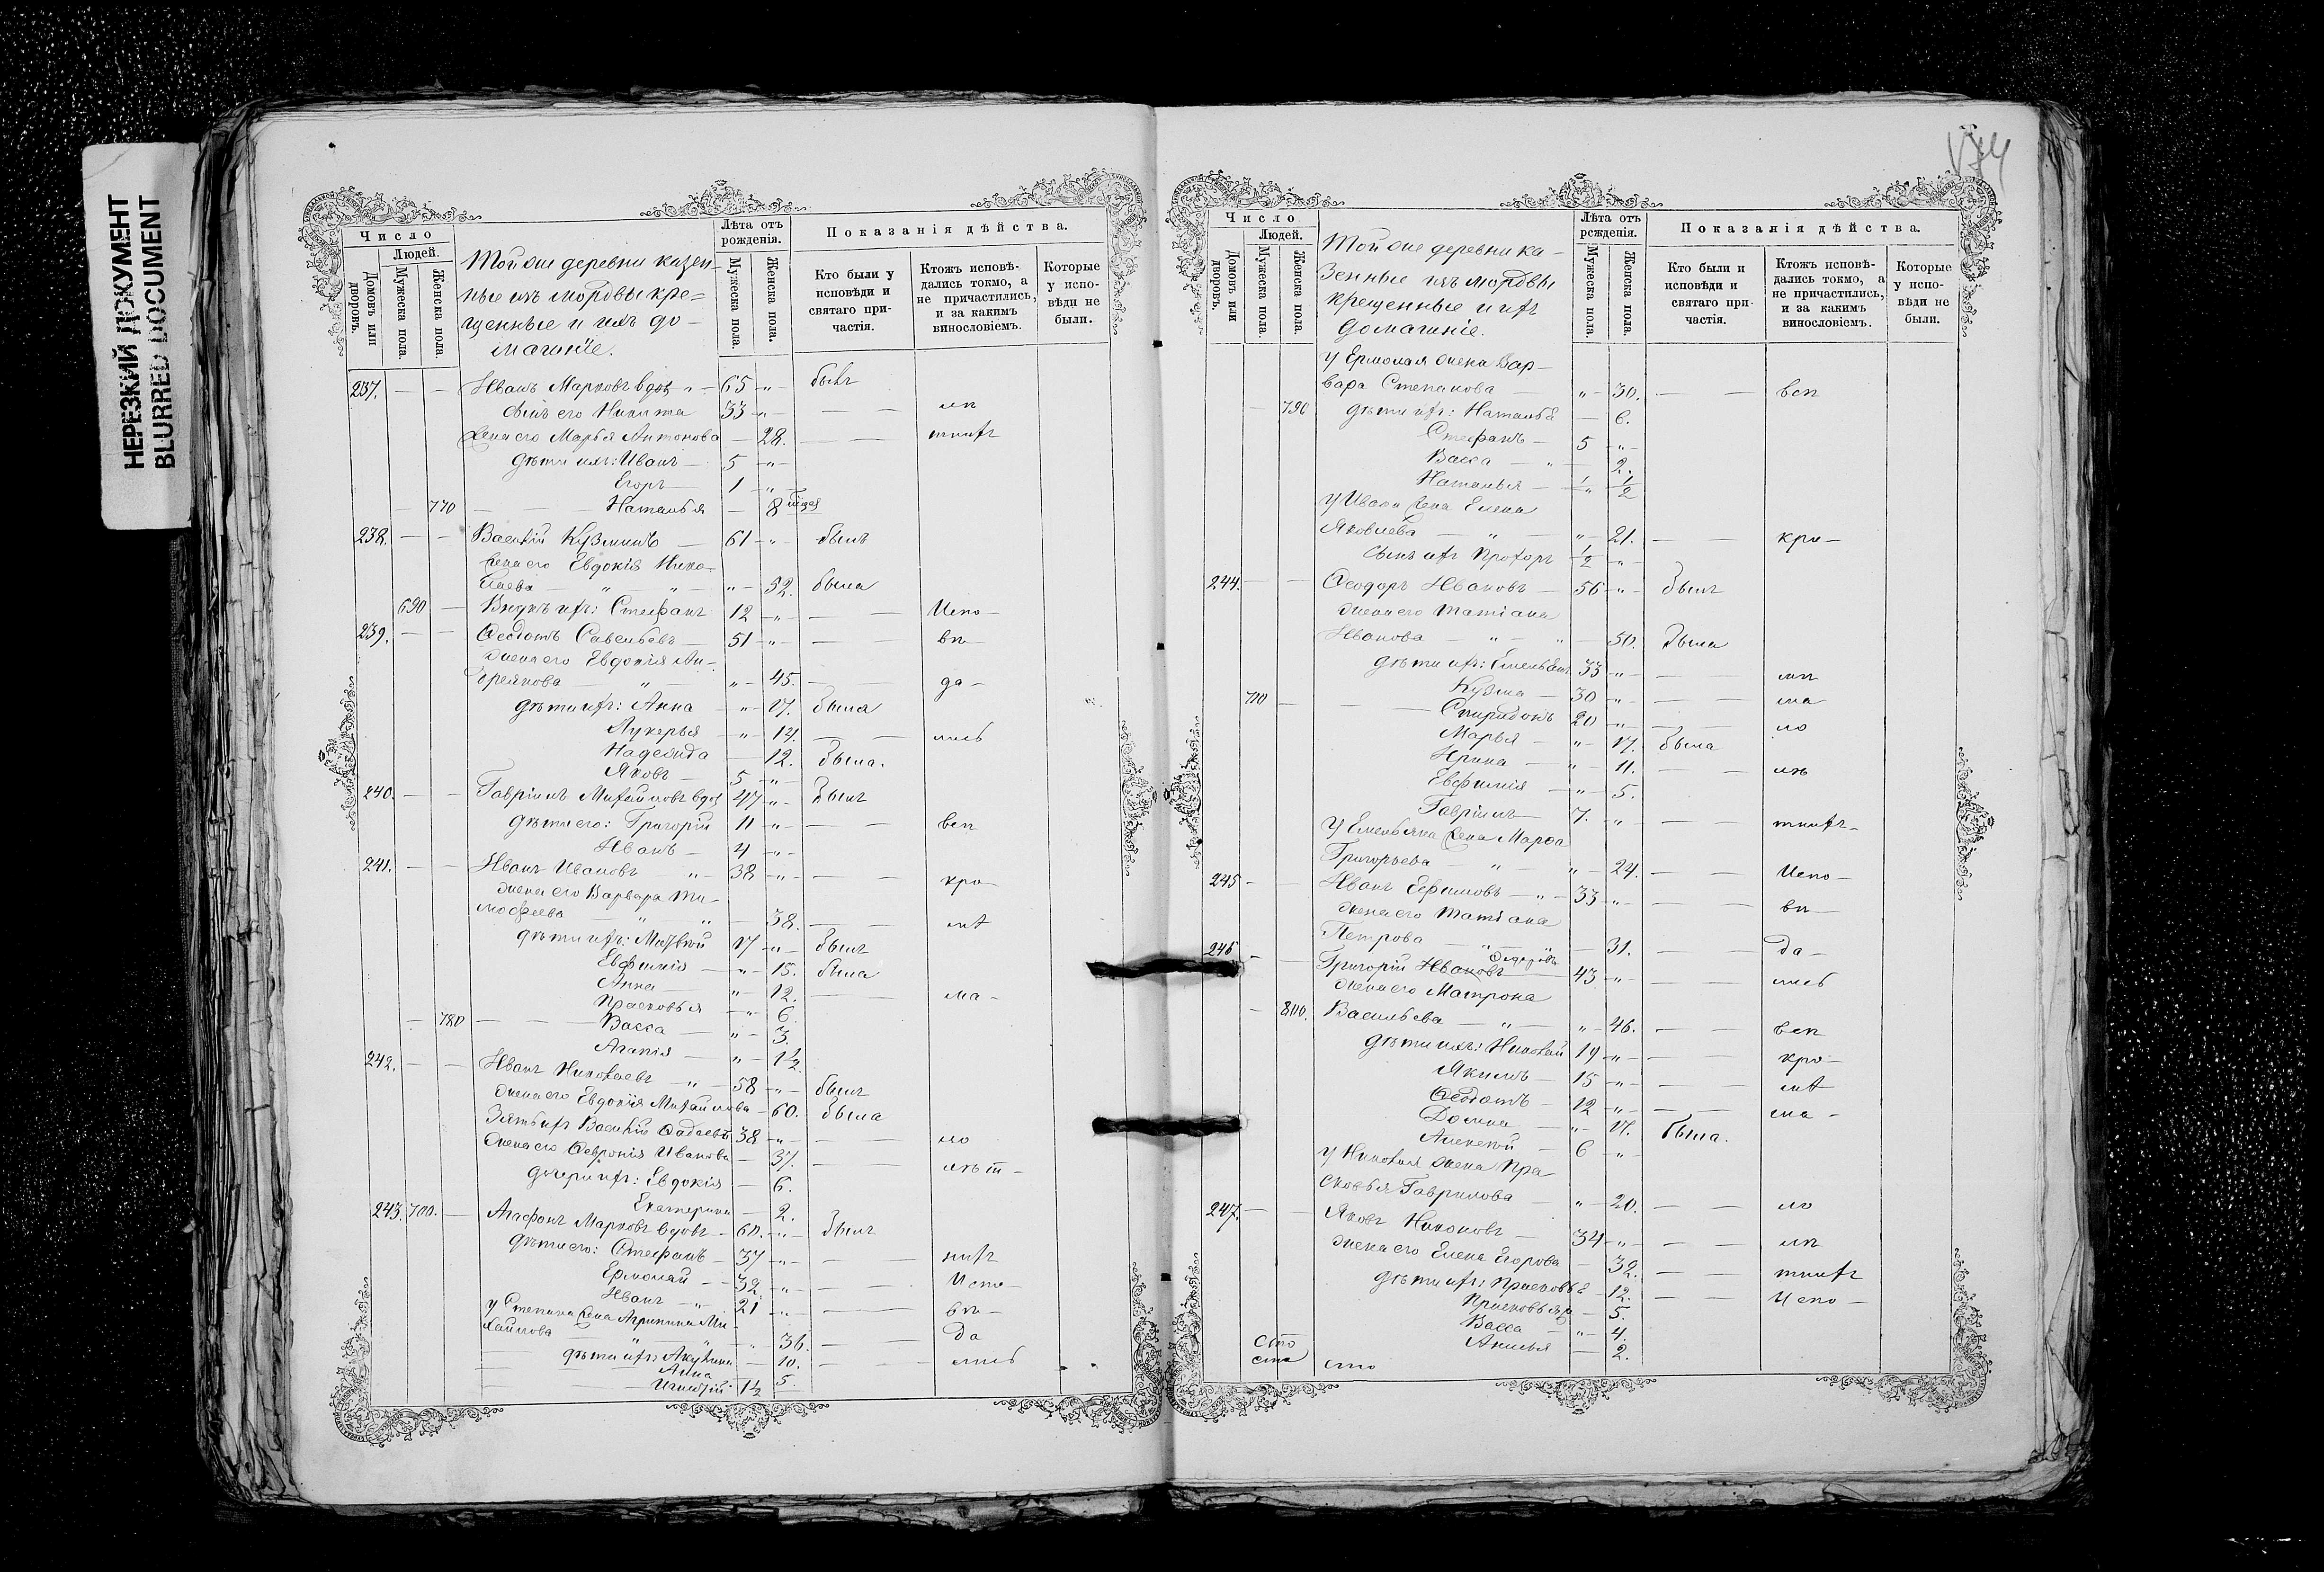 НЕРЕЗКИЙ ДОКУМЕНТ
BLURRED DOCUMENT
Число
Людей.
Домовъ или дворовъ.
Мужеска пола.
Женска пола.
Тойже деревни казен-
ные изъ мордвы кре=
щенные и ихъ до-
машніе.
Лѣта отъ рожденія.
Мужеска пола.
Женска пола.
Показанія дѣйства.
Кто были у исповѣди и святаго при-частія.
Ктожъ исповѣ-дались токмо, а не причастились, и за какимъ винословіемъ.
Которые у испо-вѣди не были.
237. — — Иванъ Марковъ вдов „ 65 „ былъ
сынъ его Никита 33 „ — — ли
жена его Марья Антонова — 28. — — тихъ
дѣти ихъ: Иванъ — 5 „
Егоръ — 1 „
770 — Наталья — 8 мѣся
238. — — Василій Кузминъ — 61 „ былъ
жена его Евдокія Нико-
лаева „ „ „ 52. была
690 — Внукъ ихъ: Стефанъ 12 „ — — Испо-
239. — — Ѳедотъ Савельевъ — 51 „ — — вѣ-
жена его Евдокія Ан-
дреянова — „ „ 45. — — да-
дѣти ихъ: Анна „ 17. была
Лукерья „ 14. — — лись
Надежда — 12. была.
Яковъ — 5 „
240. — — Гавріилъ Михайловъ вдов 47 „ былъ
дѣти его: Григорій 11 „ — — вел
Иванъ — 4 „
241. — — Иванъ Ивановъ „ 38 „ — — кро-
жена его Варвара Ти-
мофеева „ „ — 38. — — мѣ
дѣти ихъ: Матвѣй 17 „ былъ
Евфимія „ 15. была
Анна „ 12. — — ма-
Прасковья „ 6
780 — Васса — „ 3.
Агапія — „ 1½
242. — — Иванъ Николаевъ „ 58 „ былъ
жена его Евдокія Михайлова — 60. была
Зять ихъ Василій Фадеевъ 38 „ — — ло
жена его Февронія Иванова — 37. — — лѣт-
дочери ихъ: Евдокія — 6.
Екатерина — 2.
243. 700. — Агафонъ Марковъ вдовъ — 60. „ былъ
дѣти его: Стефанъ — 37 „ — — нихъ
Ермолай — 32. „ — — Испо-
Иванъ — „ 21 „ — — вѣ-
у Степана жена Агрипина Ми-
хайлова „ „ „ 36. — — да
дѣти ихъ: Акулина — 10. — — лись
Анна 5.
Игнатій 1½
174
Число
Людей.
Домовъ или дворовъ.
Мужеска пола.
Женска пола.
Тойже деревни ка-
зенные изъ мордвы
крещенные и ихъ
домашніе.
Лѣта отъ рожденія.
Мужеска пола
Женска пола.
Показанія дѣйства.
Кто были и исповѣди и святаго при-частія.
Ктожъ исповѣ-дались токмо, а не причастились, и за какимъ винословіемъ.
Которые у испо-вѣди не были.
у Ермолая жена Вар-
вара Степанова — „ 30. — — вел
— 790 дѣти ихъ: Наталья — 6.
Стефанъ — 5 „
Васса — „ — 2.
Наталья — „ ½
у Ивана жена Елена
Яковлева — „ — „ 21. — — кро-
сынъ ихъ Прохоръ ½ „
244. — — Ѳеодоръ Ивановъ — 56 „ былъ
жена его Татіана
Иванова — „ — „ — 50. была
дѣти ихъ: Емельянъ 33 „ — — мѣ
710 — Кузма — 30 „ — — ма
Спиридонъ 20 „ — — ло
Марья — „ 17. была
Ирина — „ 11. — — лѣ
Евфимія — „ 5.
Гавріилъ — 7. „ тнихъ-
у Емельяна жена Марѳа
Григорьева — „ — „ 24. — — Испо-
245 — — Иванъ Ефимовъ — „ 33 „ — — вѣ-
жена его Татіана
Петрова — „ — 31. — — да-
246 — — Григорій Ивановъ 43 „ — — лись
жена его Матрона
— 800. Васильева — „ — „ 46. — — вел
дѣти ихъ: Николай 19 „ — — кро-
Якимъ — 15 „ — — мѣ
Ѳедотъ — 12 „ — — ма-
Домна — „ 17. была.
Алексѣй — 6 „
у Николая жена Пра-
сковья Гаврилова — „ 20. — — ло
247. — — Яковъ Никоновъ — 34 „ — — лѣ
жена его Елена Егорова — 32. — — тнихъ
дѣти ихъ: Прасковья — 12. — — Испо-
Прасковья — 5.
Васса — „ 4.
Акилья — 2.